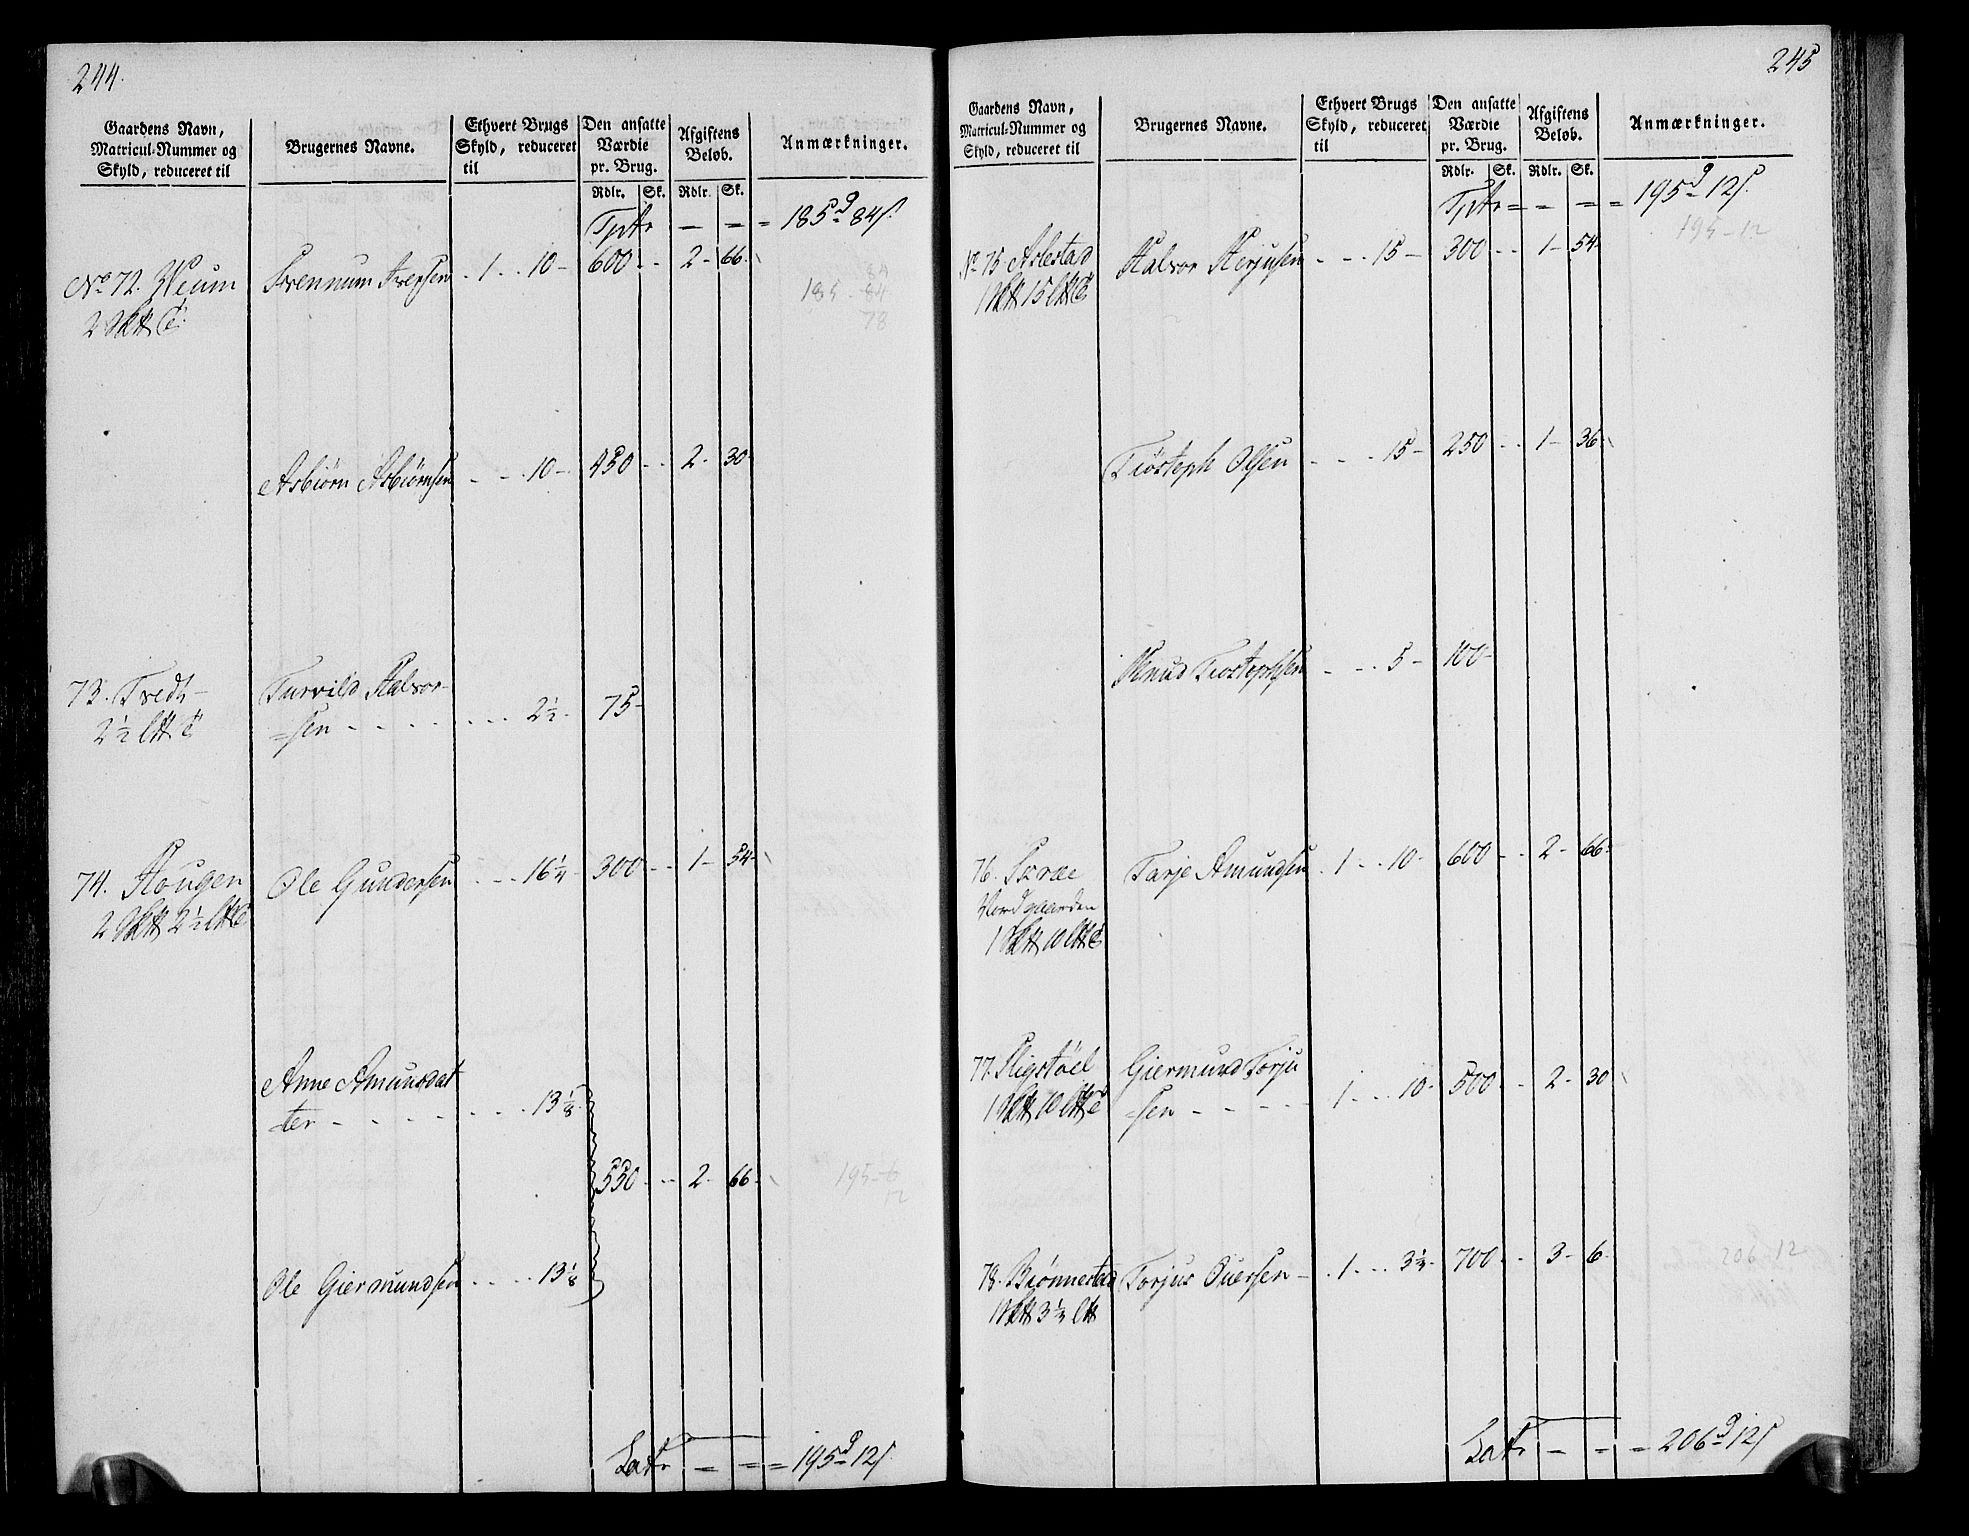 244.
Gaardens Navn,
Matricul-Nummer og
Skyld, reduceret til
Brugernes Navne.
Ethvert Brugs
Skyld, reduceret
til
Den ansatte
Værdie
pr. Brug.
Rdlr. Sk.
Afgiftens
Beløb.
Rdlr. Sk.
Anmærkninger.
Tptr – – = 185 d 84 s.
No 72. Veum Svennum Iversen 1 .. 10 – 600 .. 2 – 66.
2
185 – 84
84
78
Asbiörn Asbiörnsen – – . 10 – 450 .. 2 – 30
73. Tvedt – Turvild Halvor-
2 1/2 =sen – – – – – 2 1/2 . 75 –
74. Hougen Ole Gundersen . – – . 16 1/4 . 300 .. 1 – 54 –
2 2 1/2
Anne Amunsdat
=ter – . . – – . . . 13 1/8
550 – .. 2 – 66 –
195 – 6
12
Ole Giermundsen . . . . 13 1/8
Latr – = = 195 d 12 s.
245
Gaardens Navn,
Matricul-Nummer og
Skyld, reduceret til
Brugernes Navne.
Ethvert Brugs
Skyld, reduceret
til
Den ansatte
Værdie
pr. Brug.
Rdlr. Sk.
Afgiftens
Beløb.
Rdlr. Sk.
Anmærkninger.
Tptr = – = = 195 d 12 s.
195 – 12
No 75. Aslestad Halvor Herjusen – – . 15 – 300 .. 1 – 54
1 15
Tiösteph Olsen – – . 15 – 250 .. 1 – 36
Knud Tiostephsen . – – . 5 – 100 –
76. Skrae Tarje Amundsen . 1 – . 10 – 600 – . 2 – 66 –
Nordgaarden
1 10
77. Sligstöel Giermund Torju
1 10 =sen – – – – 1 . . . 10 – 500 . . 2 – 30
78. Brönnestad Torjus Ouersen – . 1 . . . 3 1/4 – 700 – . 3 – 6 –
1 3 1/4
206 – 12
Latr – = = 206 d 12 s